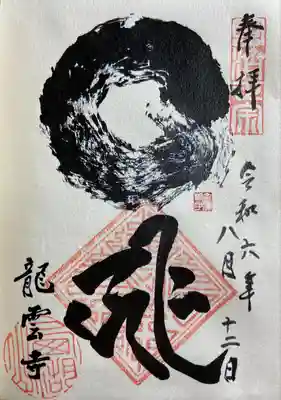 奉拝
令和六年
八月十二日
龍
龍雲寺